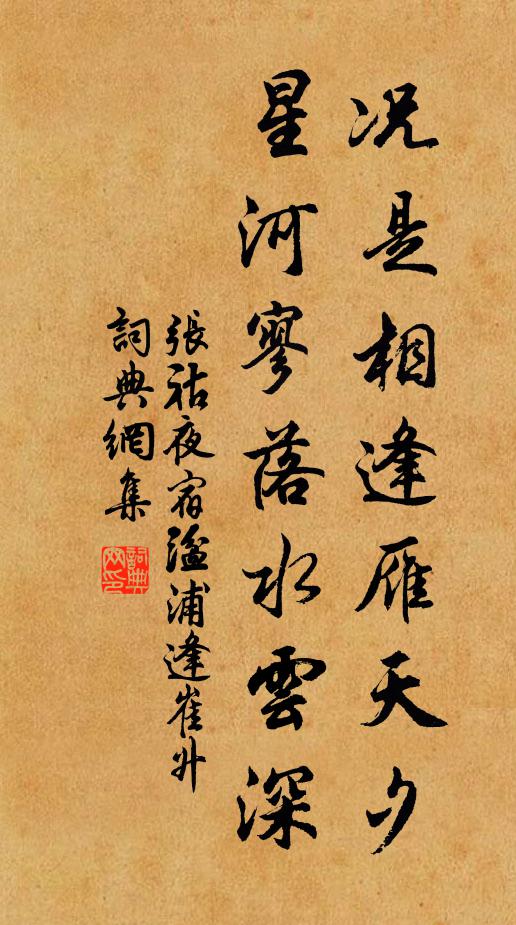 况是相逢雁天夕
星河寥落水雲深
張祜夜宿湓浦逢崔升
詞典網集
詞典網印